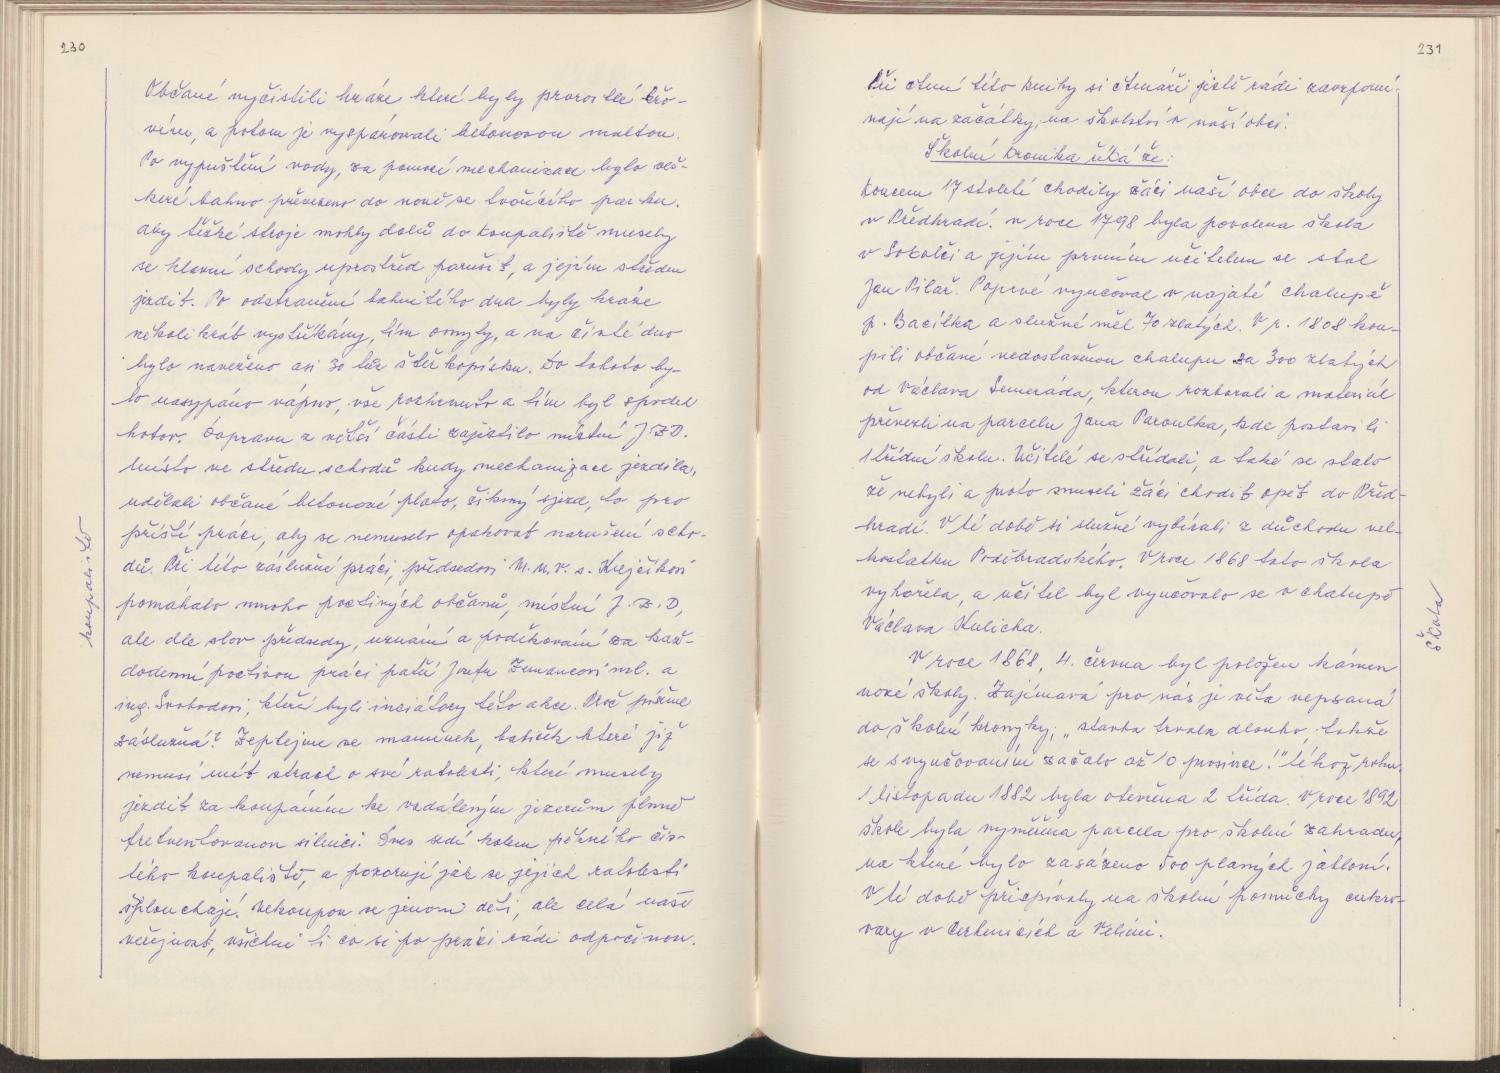 230
Občané vyčistili hráze které byly prorostlé křo-
vím, a potom je vyspárovali betonovou maltou.
Po vypuštění vody, za pomocí mechanizace bylo veš-
keré bahno převezeno do nově se tvořícího parku.
aby těžké stroje mohly dolů do koupaliště musely
se hlavní schody uprostřed porušit, a jejím středem
jezdit. Po odstranění bahnitého dna byly hráze
několikrát vystříkány, tím omyty, a na čisté dno
bylo navezeno asi 30 fůr štěrkopísku. Do tohoto by-
lo nasypáno vápno, vše rozhrnuto a tím byl spodek
hotov. Dopravu z větší části zajistilo místní J.Z.D.
Místo ve středu schodů kudy mechanizace jezdila,
udělali občané betonové plato, šikmý sjezd, to pro
příští práci, aby se nemuselo opakovat narušení scho-
dů. Při této záslužné práci, předsedovi M.n.v. s. Krejčíkovi
pomáhalo mnoho poctivých občanů, místní J.Z.D,
ale dle slov předsedy, uznání a poděkování za kaž-
dodenní poctivou práci patří Josefu Zumancovi ml. a
ing. Svobodovi, kteří byli inciátory této akce. Proč píšeme
záslužná? Zeptejme se maminek, babiček které již
nemusí mít strach o své ratolesti, které musely
jezdit za koupáním ke vzdáleným jezerům plnně
frekventovanou silnicí. Dnes sedí kolem pěkného čis-
tého koupaliště, a pozorují jak se jejich ratolesti
šplouchají. Nekoupou se jenom děti, ale celá naše
veřejnost, všichni ti co si po práci rádi odpočinou.
koupaliště
231
Při čtení této knihy si čtenáři jistě rádi zavzpomí-
nají na začátky, na školství v naší obci.
Školní kronika říká že:
Koncem 17 století chodily žáci naší obce do školy
v Předhradí. v roce 1798 byla povolena škola
v Sokolči a jejím prvním učitelem se stal
Jan Pilař. Poprvé vyučoval v najaté chalupě
p. Bacílka a služné měl 70 zlatých. V r. 1808 kou-
pili občané nedostavěnou chalupu za 300 zlatých
od Václava Semeráda, kterou rozbourali a materiál
převezli na parcelu Jana Paroulka, kde postavili
1 třídní školu. Učitelé se střídali, a také se stalo
že nebyli a proto museli žáci chodit opět do Před-
hradí. V té době si služné vybírali z důchodu vel-
kostatku Poděbradského. V roce 1868 tato škola
vyhořela, a učitel byl vyučovalo se v chalupě
Václava Kulicha.
V roce 1868, 4. června byl položen kámen
nové školy. Zajímavá pro nás je věta vepsaná
do školní kronyky; „stavba trvala dlouho, takže
se s vyučováním začalo až 10 prosince!" téhož roku.
1 listopadu 1882 byla otevřena 2 třída. V roce 1892
škole byla vyměřena parcela pro školní zahradu,
na které bylo zasázeno 500 planých jabloní.
V té době přispívaly na školní pomůcky cukro-
vary v Cerhenicích a Velimi.
škola